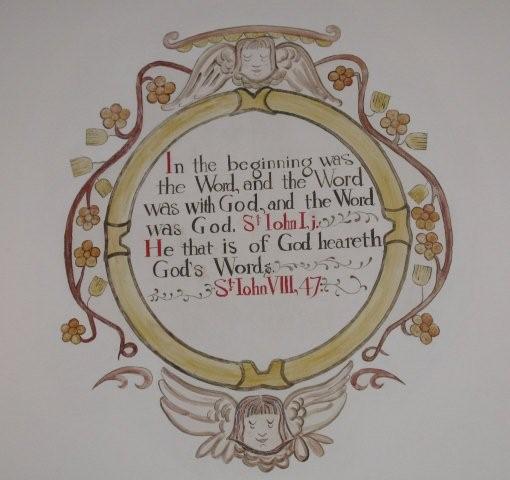 In the beginning was
the Word, and the Word
was with God, and the Word
was God. St Iohn I,j.
He that is of God heareth
God's Words.
St Iohn VIII, 47.